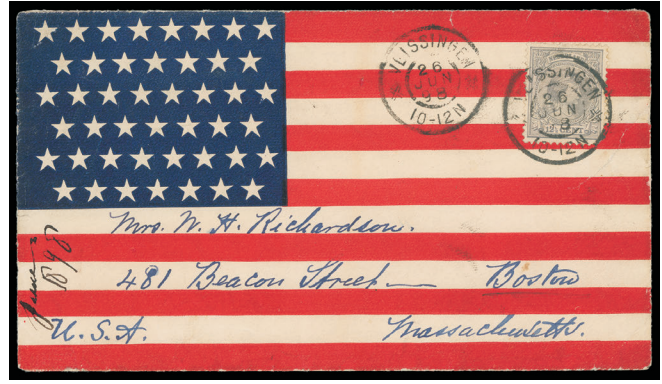 VLISSINGEN
26
JUN
98
10-12N
VLISSINGEN
26
JUN
10-12N
Mrs. W. H. Richardson.
481 Beacon Street — Boston
U.S.A. Massachusetts.
June
1898